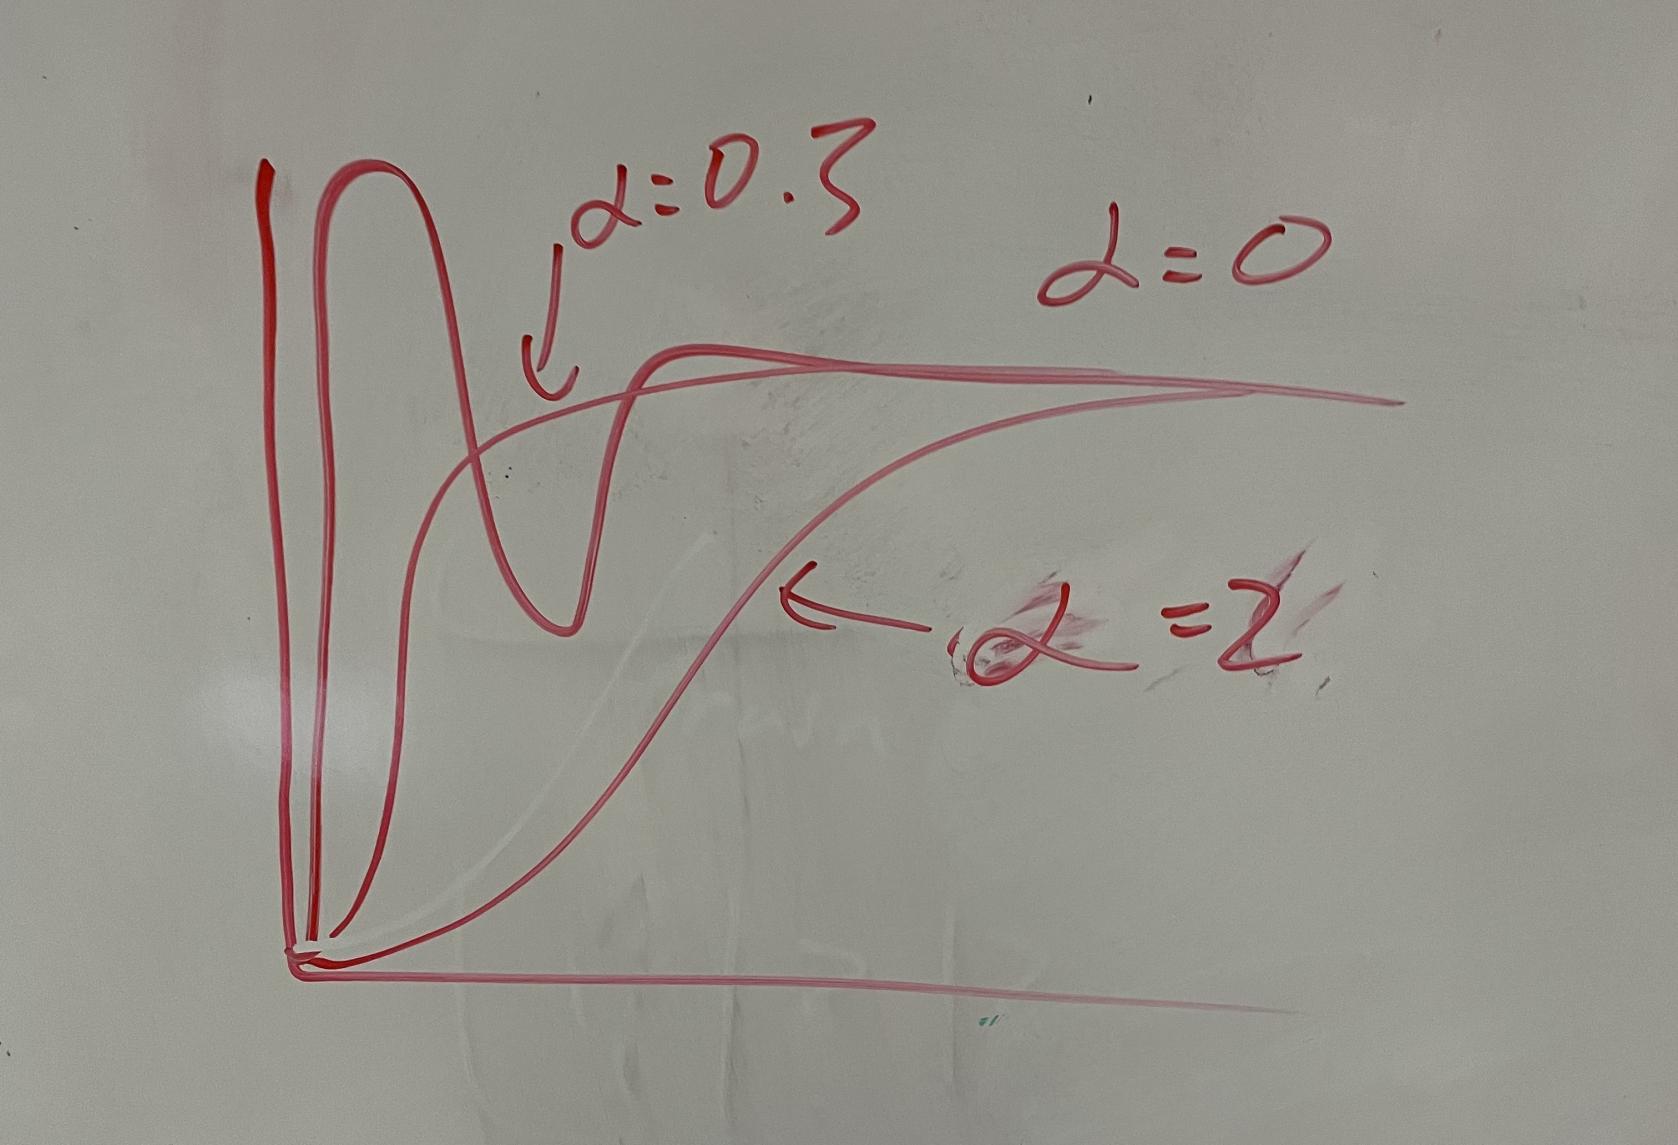 α=0.3
α=0
α=2